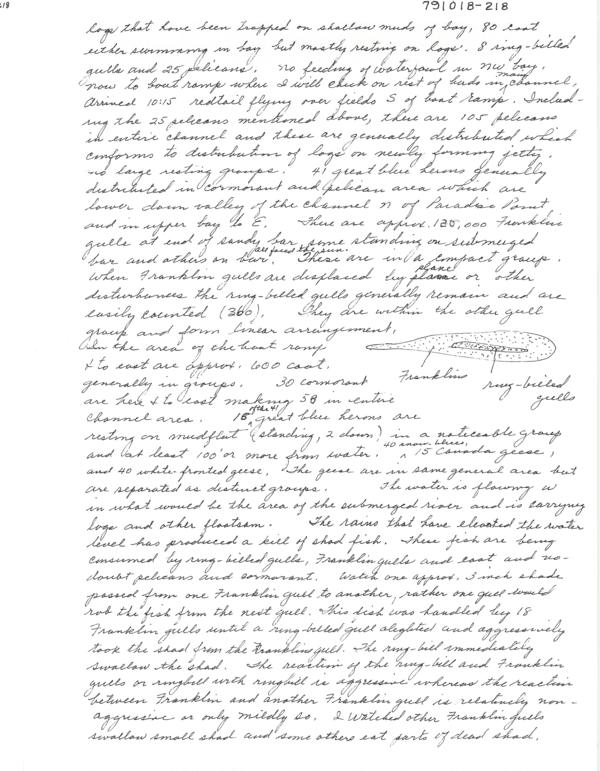 218
791018-218
logs that have been trapped on shallow muds of bay, 80 coot
either swimming in bay but mostly resting on logs. 8 ring-billed
gulls and 25 pelicans. no feeding of waterfowl in NW bay.
now to boat ramp where I will check on rest of birds in main channel.
Arrived 10:15 redtail flying over fields S of boat ramp. Includ-
ing the 25 pelicans mentioned above, there are 105 pelicans
in entire channel and these are generally distributed which
conforms to distribution of logs on newly forming jetty.
no large resting groups. 41 great blue herons generally
distributed in cormorant and pelican area which are
lower down valley of the channel N of Paradise Point
and in upper bay to E. There are approx. 125,000 Franklin
gulls at end of sandy bar, some standing on submerged
bar and others on bar. all faced the sun. These are in a compact group.
When Franklin gulls are displaced by plane or other
disturbances the ring-billed gulls generally remain and are
easily counted (360). They are within the other gull
group and form linear arrangement.
In the area of the boat ramp
& to east are approx. 600 coot.
generally in groups. 30 cormorant
are here & to east making 58 in entire
channel area. 15 of the 41 great blue herons are
Franklins
ring-billed
gulls
resting on mudflat (standing, 2 down) in a noticeable group
and at least 100' or more from water. 40 snow, blues, 15 Canada geese,
and 40 white-fronted geese. The geese are in same general area but
are separated as distinct groups. The water is flowing W
in what would be the area of the submerged river and is carrying
logs and other flootsam. The rains that have elevated the water
level has produced a kill of shad fish. These fish are being
consumed by ring-billed gulls, Franklin gulls and coot and no-
doubt pelicans and cormorant. Watch one approx. 3 inch shade
passed from one Franklin gull to another, rather one gull would
rob the fish from the next gull. This dish was handled by 18
Franklin gulls until a ring-billed gull alighted and aggressively
took the shad from the Franklin gull. The ring-bill immediately
swallow the shad. The reaction of the ring-bill and Franklin
gulls or ringbill with ringbill is aggressive whereas the reaction
between Franklin and another Franklin gull is relatively non-
aggressive or only mildly so. I watched other Franklin gulls
swallow small shad and some others eat parts of dead shad.